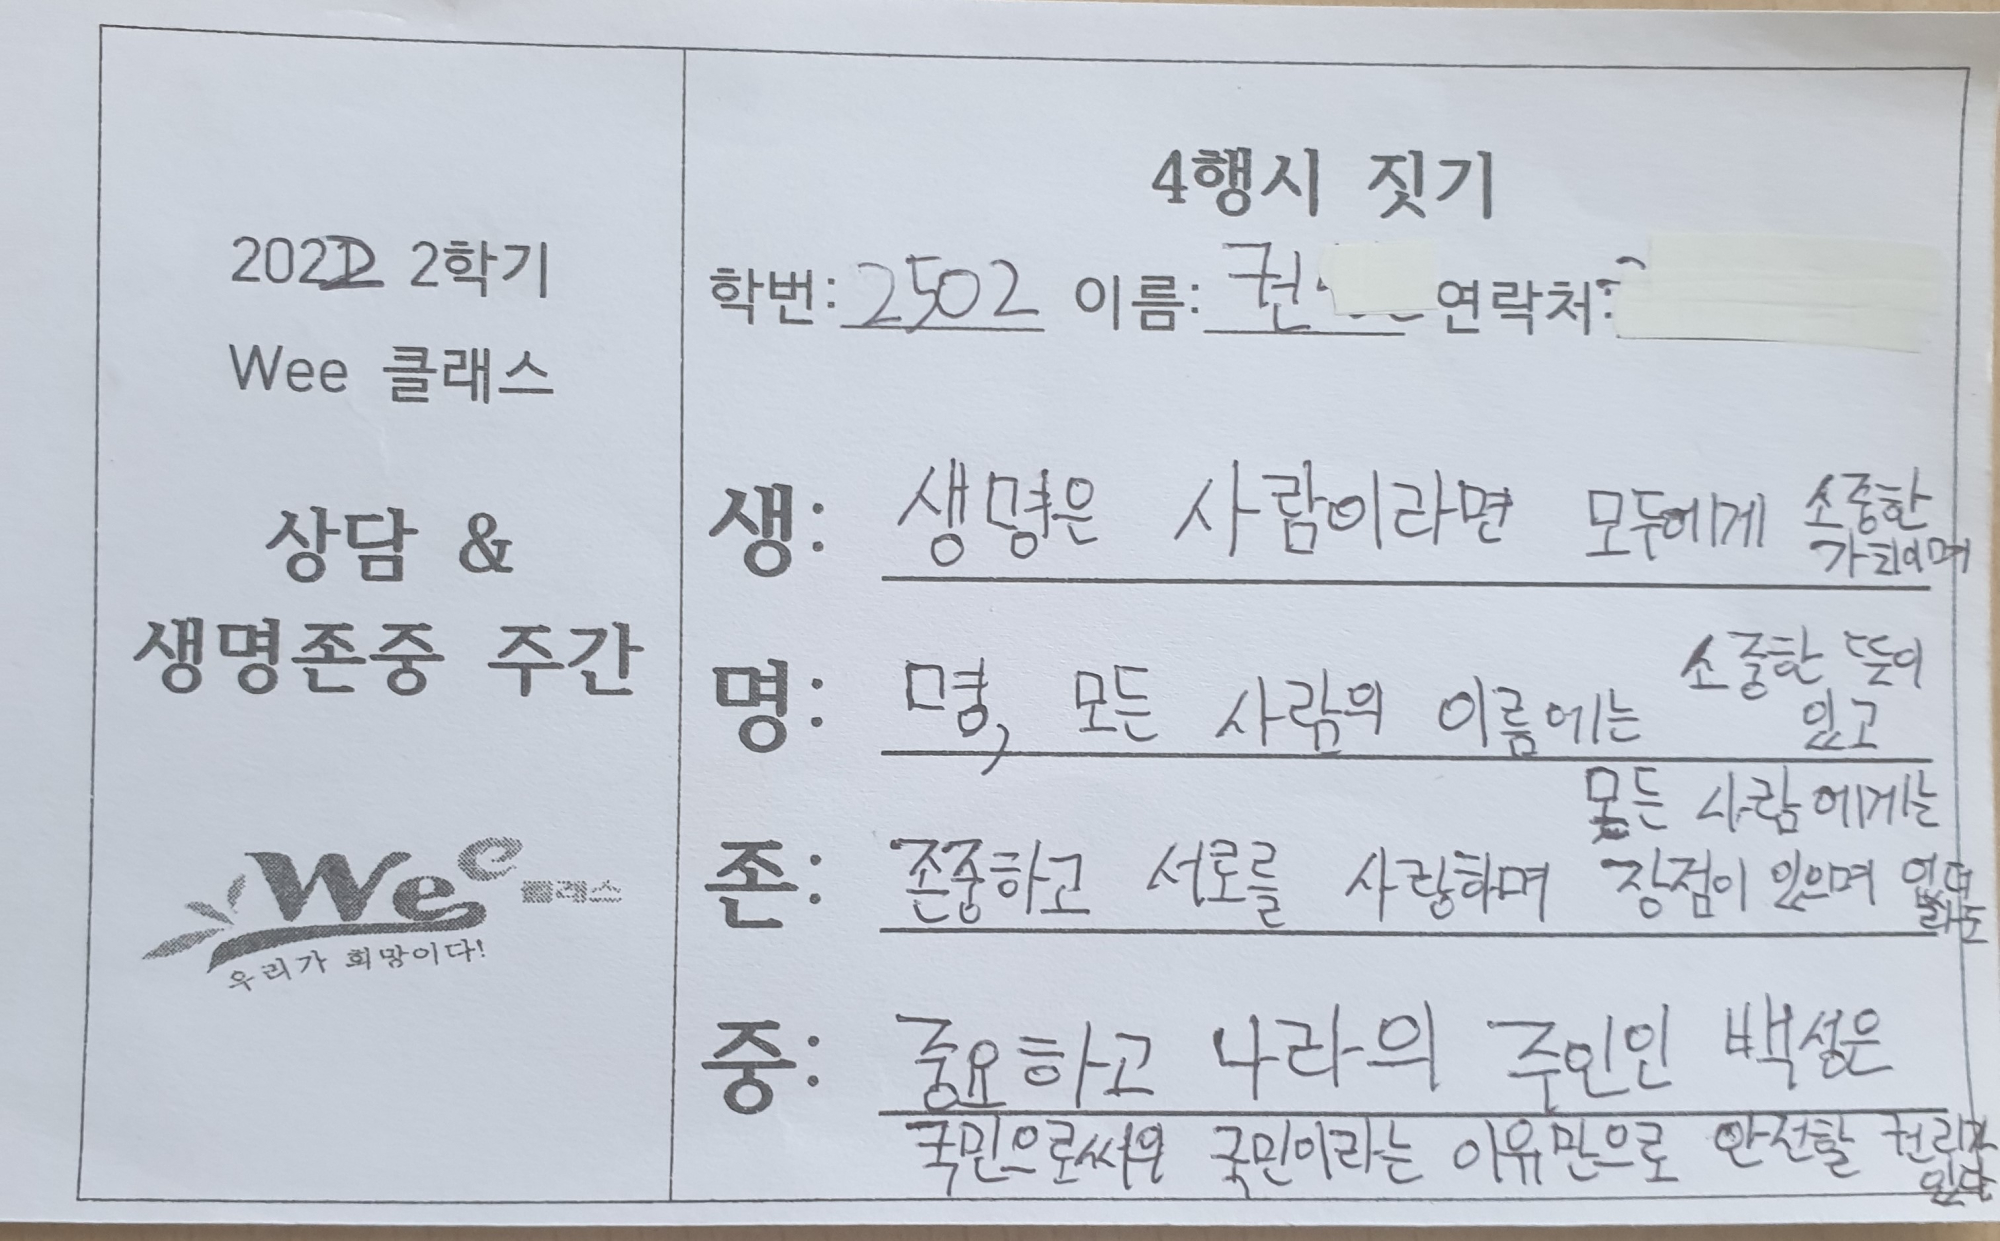 2022 2학기
Wee 클래스
상담 &
생명존중 주간
Wee 클래스
우리가 희망이다!
4행시 짓기
학번: 2502 이름: 권 연락처:
생: 생명은 사람이라면 모두에게 소중한
가치이며
명: 명, 모든 사람의 이름에는 소중한 뜻이
있고
모든 사람에게는
존: 존중하고 서로를 사랑하며 장점이 있으며
중: 중요하고 나라의 주인인 백성은
국민으로써의 국민이라는 이유만으로 안전할 권리가
있다